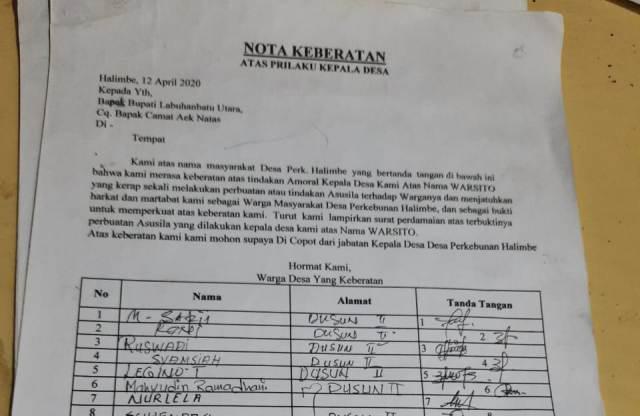 NOTA KEBERATAN
ATAS PRILAKU KEPALA DESA
Halimbe, 12 April 2020
Kepada Yth,
Bapak Bupati Labuhanbatu Utara,
Cq. Bapak Camat Aek Natas
Di -
Tempat
Kami atas nama masyarakat Desa Perk. Halimbe yang bertanda tangan di bawah ini
bahwa kami merasa keberatan atas tindakan Amoral Kepala Desa Kami Atas Nama WARSITO
yang kerap sekali melakukan perbuatan atau tindakan Asusila terhadap Warganya dan menjatuhkan
harkat dan martabat kami sebagai Warga Masyarakat Desa Perkebunan Halimbe, dan sebagai bukti
untuk memperkuat atas keberatan kami. Turut kami lampirkan surat perdamaian atas terbuktinya
perbuatan Asusila yang dilakukan kepala desa kami atas Nama WARSITO.
Atas keberatan kami kami mohon supaya Di Copot dari jabatan Kepala Desa Desa Perkebunan Halimbe
Hormat Kami,
Warga Desa Yang Keberatan
No Nama Alamat Tanda Tangan
1 M - SARII DUSUN II 1
2 DUSUN II 2
3 RUSWADI DUSUN II 3
4 SYAMSIAH DUSUN II 4
5 LEGINO-T DUSUN II 5
6 Mahyudin Ramadhani DUSUN II 6
7 NURLELA 7
8